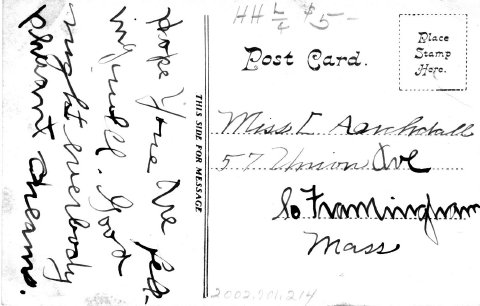 HH L/4 $5-
Post Card.
Place
Stamp
Here.
THIS SIDE FOR MESSAGE
Hope Your are feel-
ing well. Good
night everbody
pleasant dreams.
Miss E Aarchdall
57 Union Ave
So Framingham
Mass